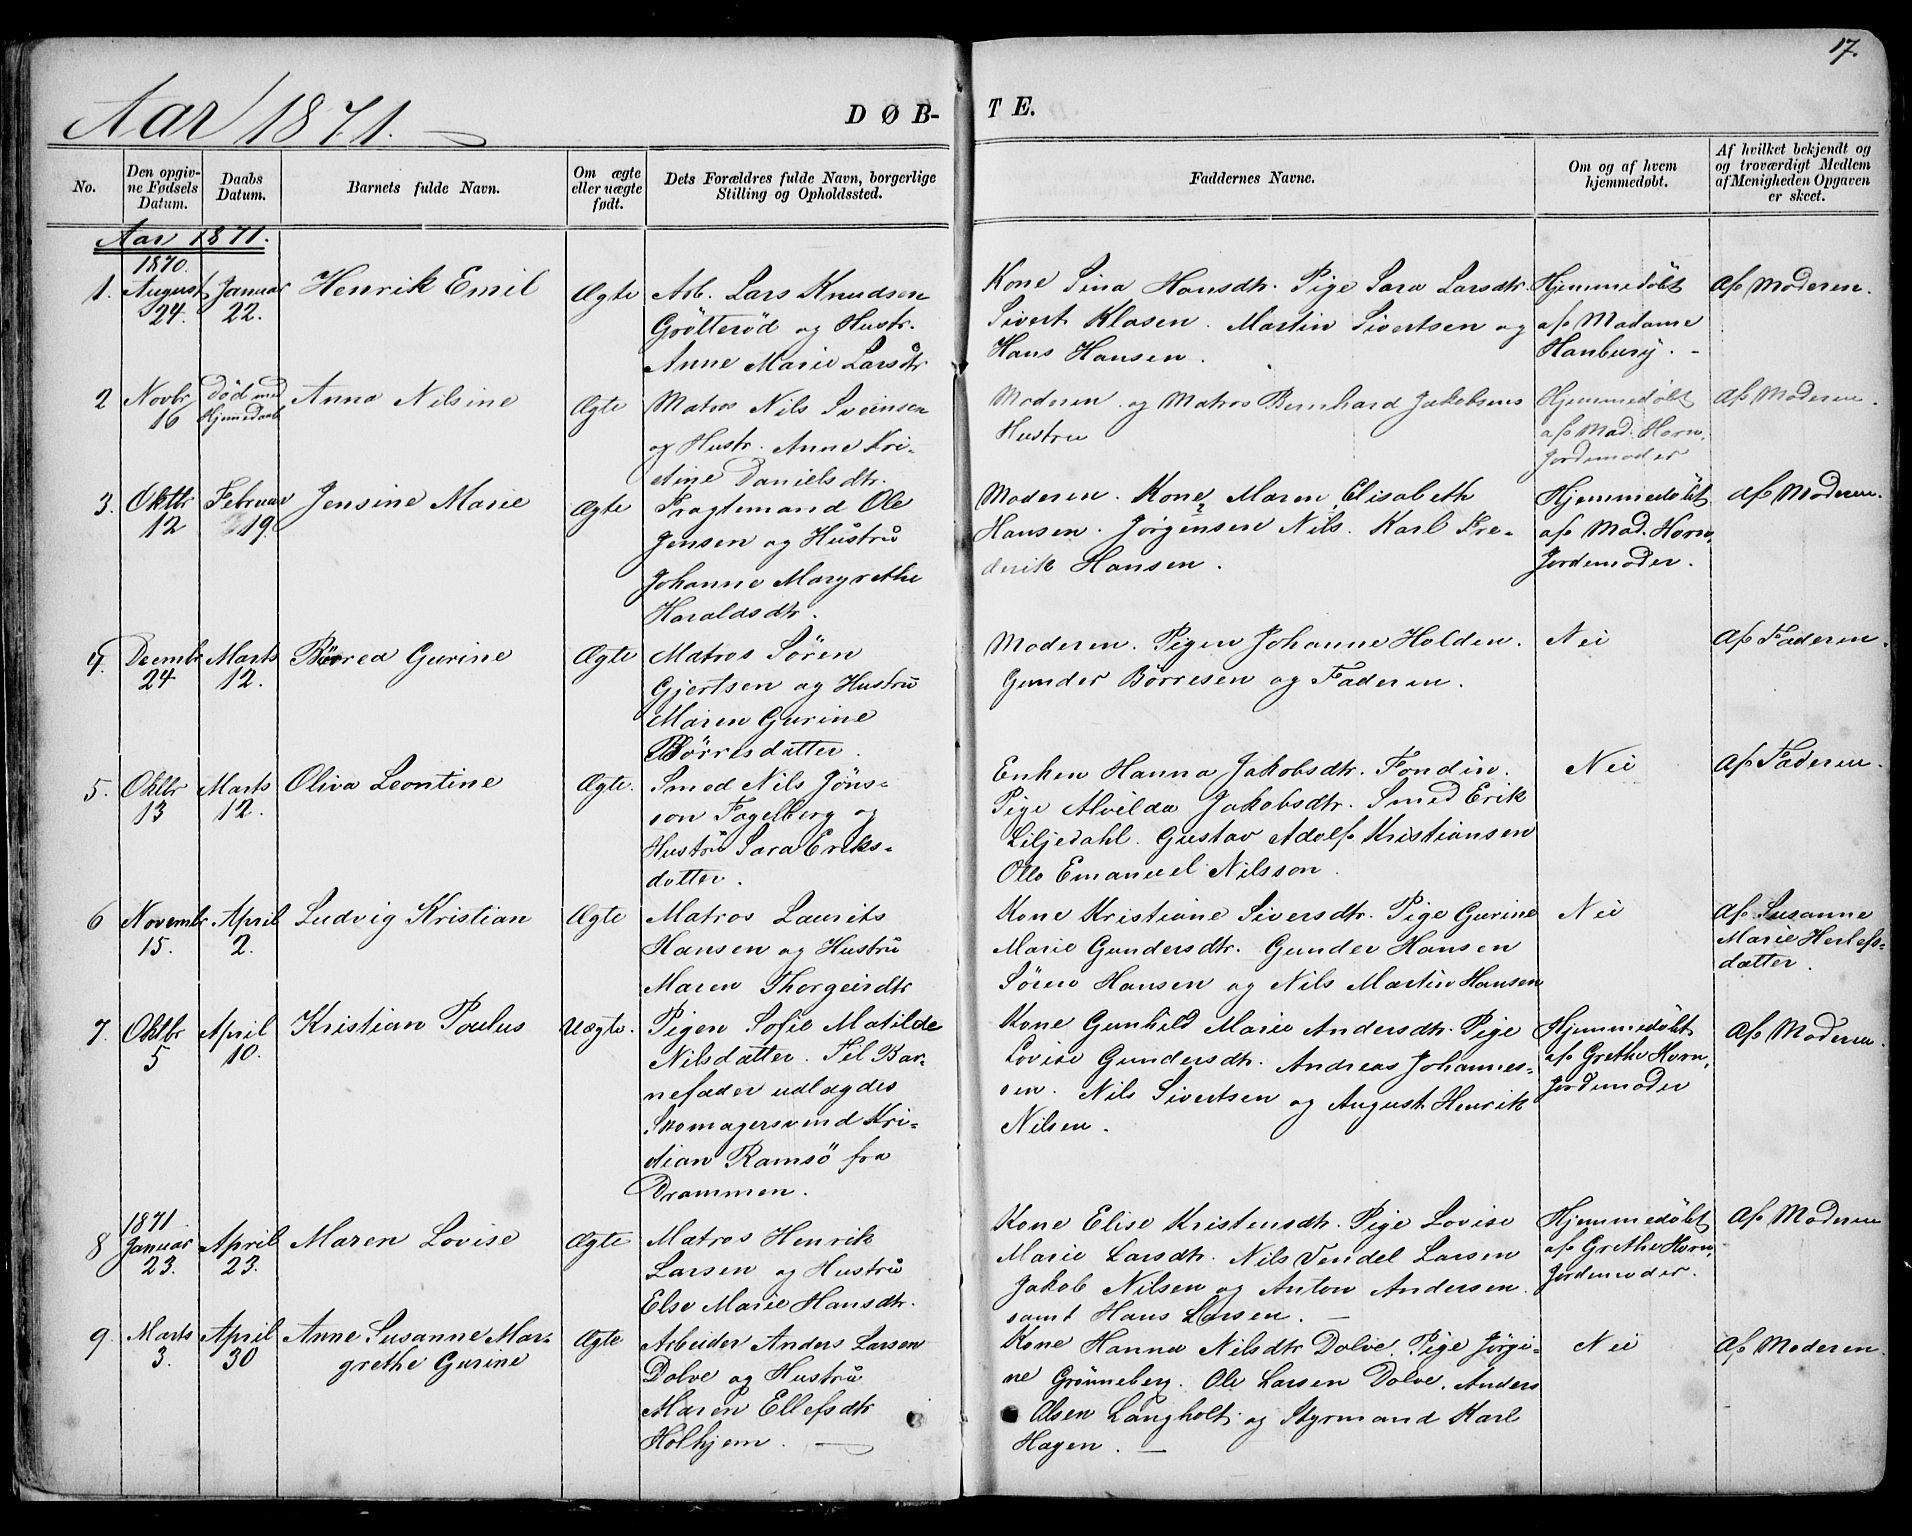 17.
Aar 1871.
DØB-TE.
No.
Den opgiv-
ne Fødsels
Datum.
Daabs
Datum.
Barnets fulde Navn.
Om ægte
eller uægte
født.
Dets Forældres fulde Navn, borgerlige
Stilling og Opholdssted.
Faddernes Navne.
Om og af hvem
hjemmedøbt.
Af hvilket bekjendt og
og troværdigt Medlem
af Menigheden Opgaven
er skeet.
Aar 1871.
1.
1870.
August
24.
Januar
22.
Henrik Emil
Ægte
Arb. Lars Knudsen
Grötteröd og Hustr.
Anne Marie Larsdtr
Kone Sina Hansdtr. Pige Sara Larsdtr.
Sivert Klasen. Martin Sivertsen og
Hans Hansen.
Hjemmedöbt
af Madame
Hanburg. -
af Moderen.
2
Novbr
16
Död med
Hjemedaab
Anna Nilsine
Ægte
Matros Nils Svensen
og Hustr. Anne Kri-
stine Danielsdtr.
Moderen og Matros Bernhard Jakobsens
Hustru
Hjemmedöbt
af Mad. Horn,
Jordemoder
af Moderen.
3.
Oktbr
12
Februar
19.
Jensine Marie
Ægte
Fragtemand Ole
Jensen og Hustrú
Johanne Margrethe
Haraldsdtr.
Moderen. Kone Maren Elisabeth
Hansen. Jörgensen Nils. Karl Fre-
derik Hansen.
Hjemmedöbt
af Mad. Horn,
Jordemoder.
af Moderen.
4.
Decembr
24
Marts
12.
Börrea Gurine
Ægte
Matros Sören
Gjertsen og Hustrú
Maren Gurine
Börresdatter.
Moderen. Pigen Johanne Holden.
Gunder Börresen og Faderen.
Nei
af Faderen.
5.
Oktbr
13
Marts
12.
Oliva Leontine
Ægte.
Smed Nils Jöns-
son Fagelberg og
Hustrú Sara Eriks-
datter.
Enken Hanna Jakobsdtr. Fondin.
Pige Alvilda Jakobsdtr. Smed Erik
Liljedahl. Gustav Adolf Kristiansen
Otto Emanuel Nilsson.
Nei
af Faderen.
6
Novembr
15.
April
2.
Ludvig Kristian
Ægte
Matros Laurits
Hansen og Hustrú
Maren Thorgeirsdtr
Kone Kristiane Siversdtr. Pige Gurine
Marie Gundersdtr. Gunder Hansen
Sören Hansen og Nils Martin Hansen
Nei
af Susanne
Marie Herlefs-
datter.
7.
Oktbr
5
April
10.
Kristian Poulus
Uægte.
Pigen Sofie Matilde
Nilsdatter. Til Bar-
nefader udlægdes
Skomagersvend Kri-
stian Ramsö fra
Drammen.
Kone Gunhild Marie Andersdtr. Pige
Lovise Gundersdtr. Andreas Johannes-
sen. Nils Sivertsen og August Henrik
Nilsen.
Hjemmedöbt
af Grethe Horn,
Jordemoder
af Moderen.
8
1871.
Januar
23.
April
23.
Maren Lovise
Ægte
Matros Henrik
Larsen og Hustrú
Else Marie Hansdtr.
Kone Elise Kristensdtr. Pige Lovise
Marie Larsdtr. Nils Vendel Larsen
Jakob Nilsen og Anton Andersen
samt Hans Larsen.
Hjemmedöbt
af Grethe Horn,
Jordemoder.
af Moderen
9.
Marts
3.
April
30
Anne Susanne Mar-
grethe Gurine
Ægte
Arbeider Anders Larsen
Dolve og Hustrú
Maren Ellefsdtr
Holhjem.
Kone Hanna Nilsdtr Dolve. Pige Jörgi-
ne Grönneberg. Ole Larsen Dolve. Anders
Olsen Langholt og Styrmand Karl
Hagen.
Nei
af Moderen.